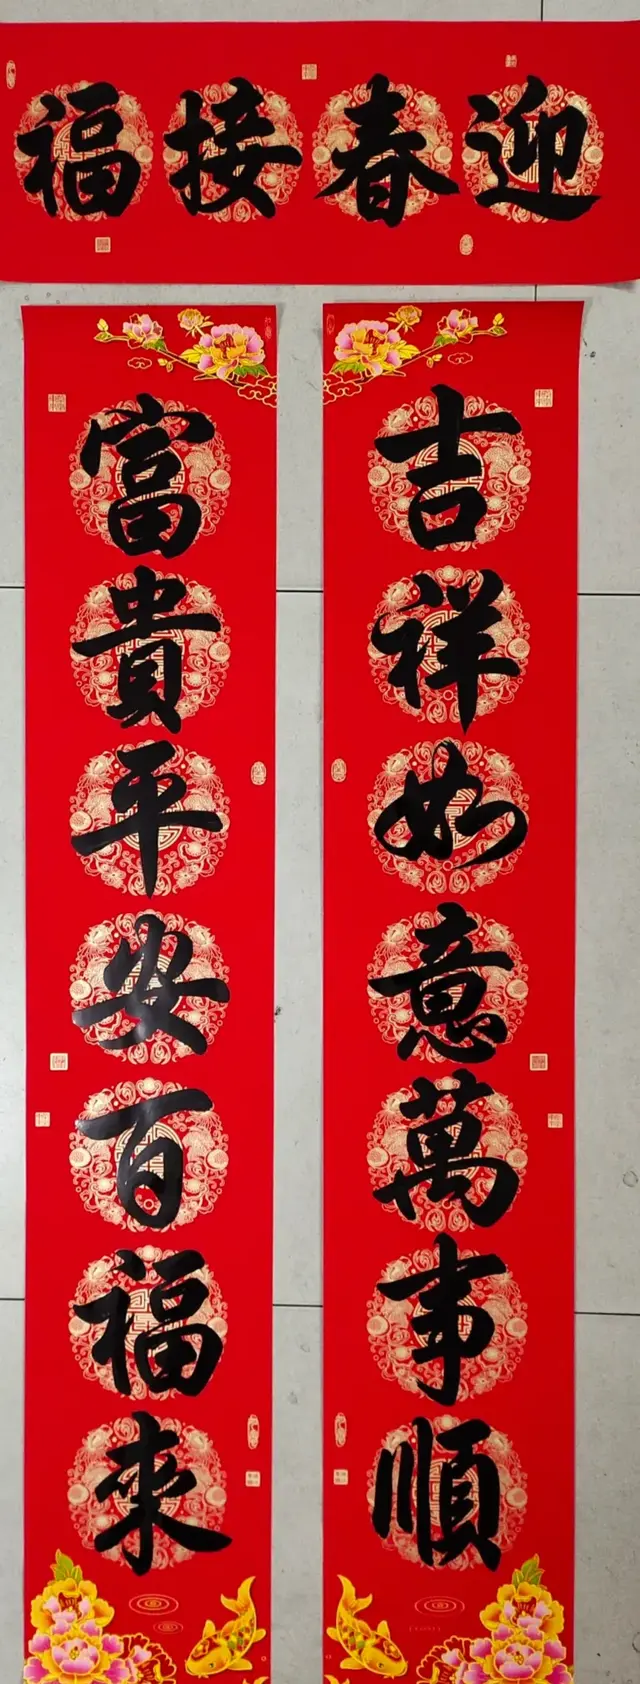 迎春接福
吉祥如意萬事順
富貴平安百福來